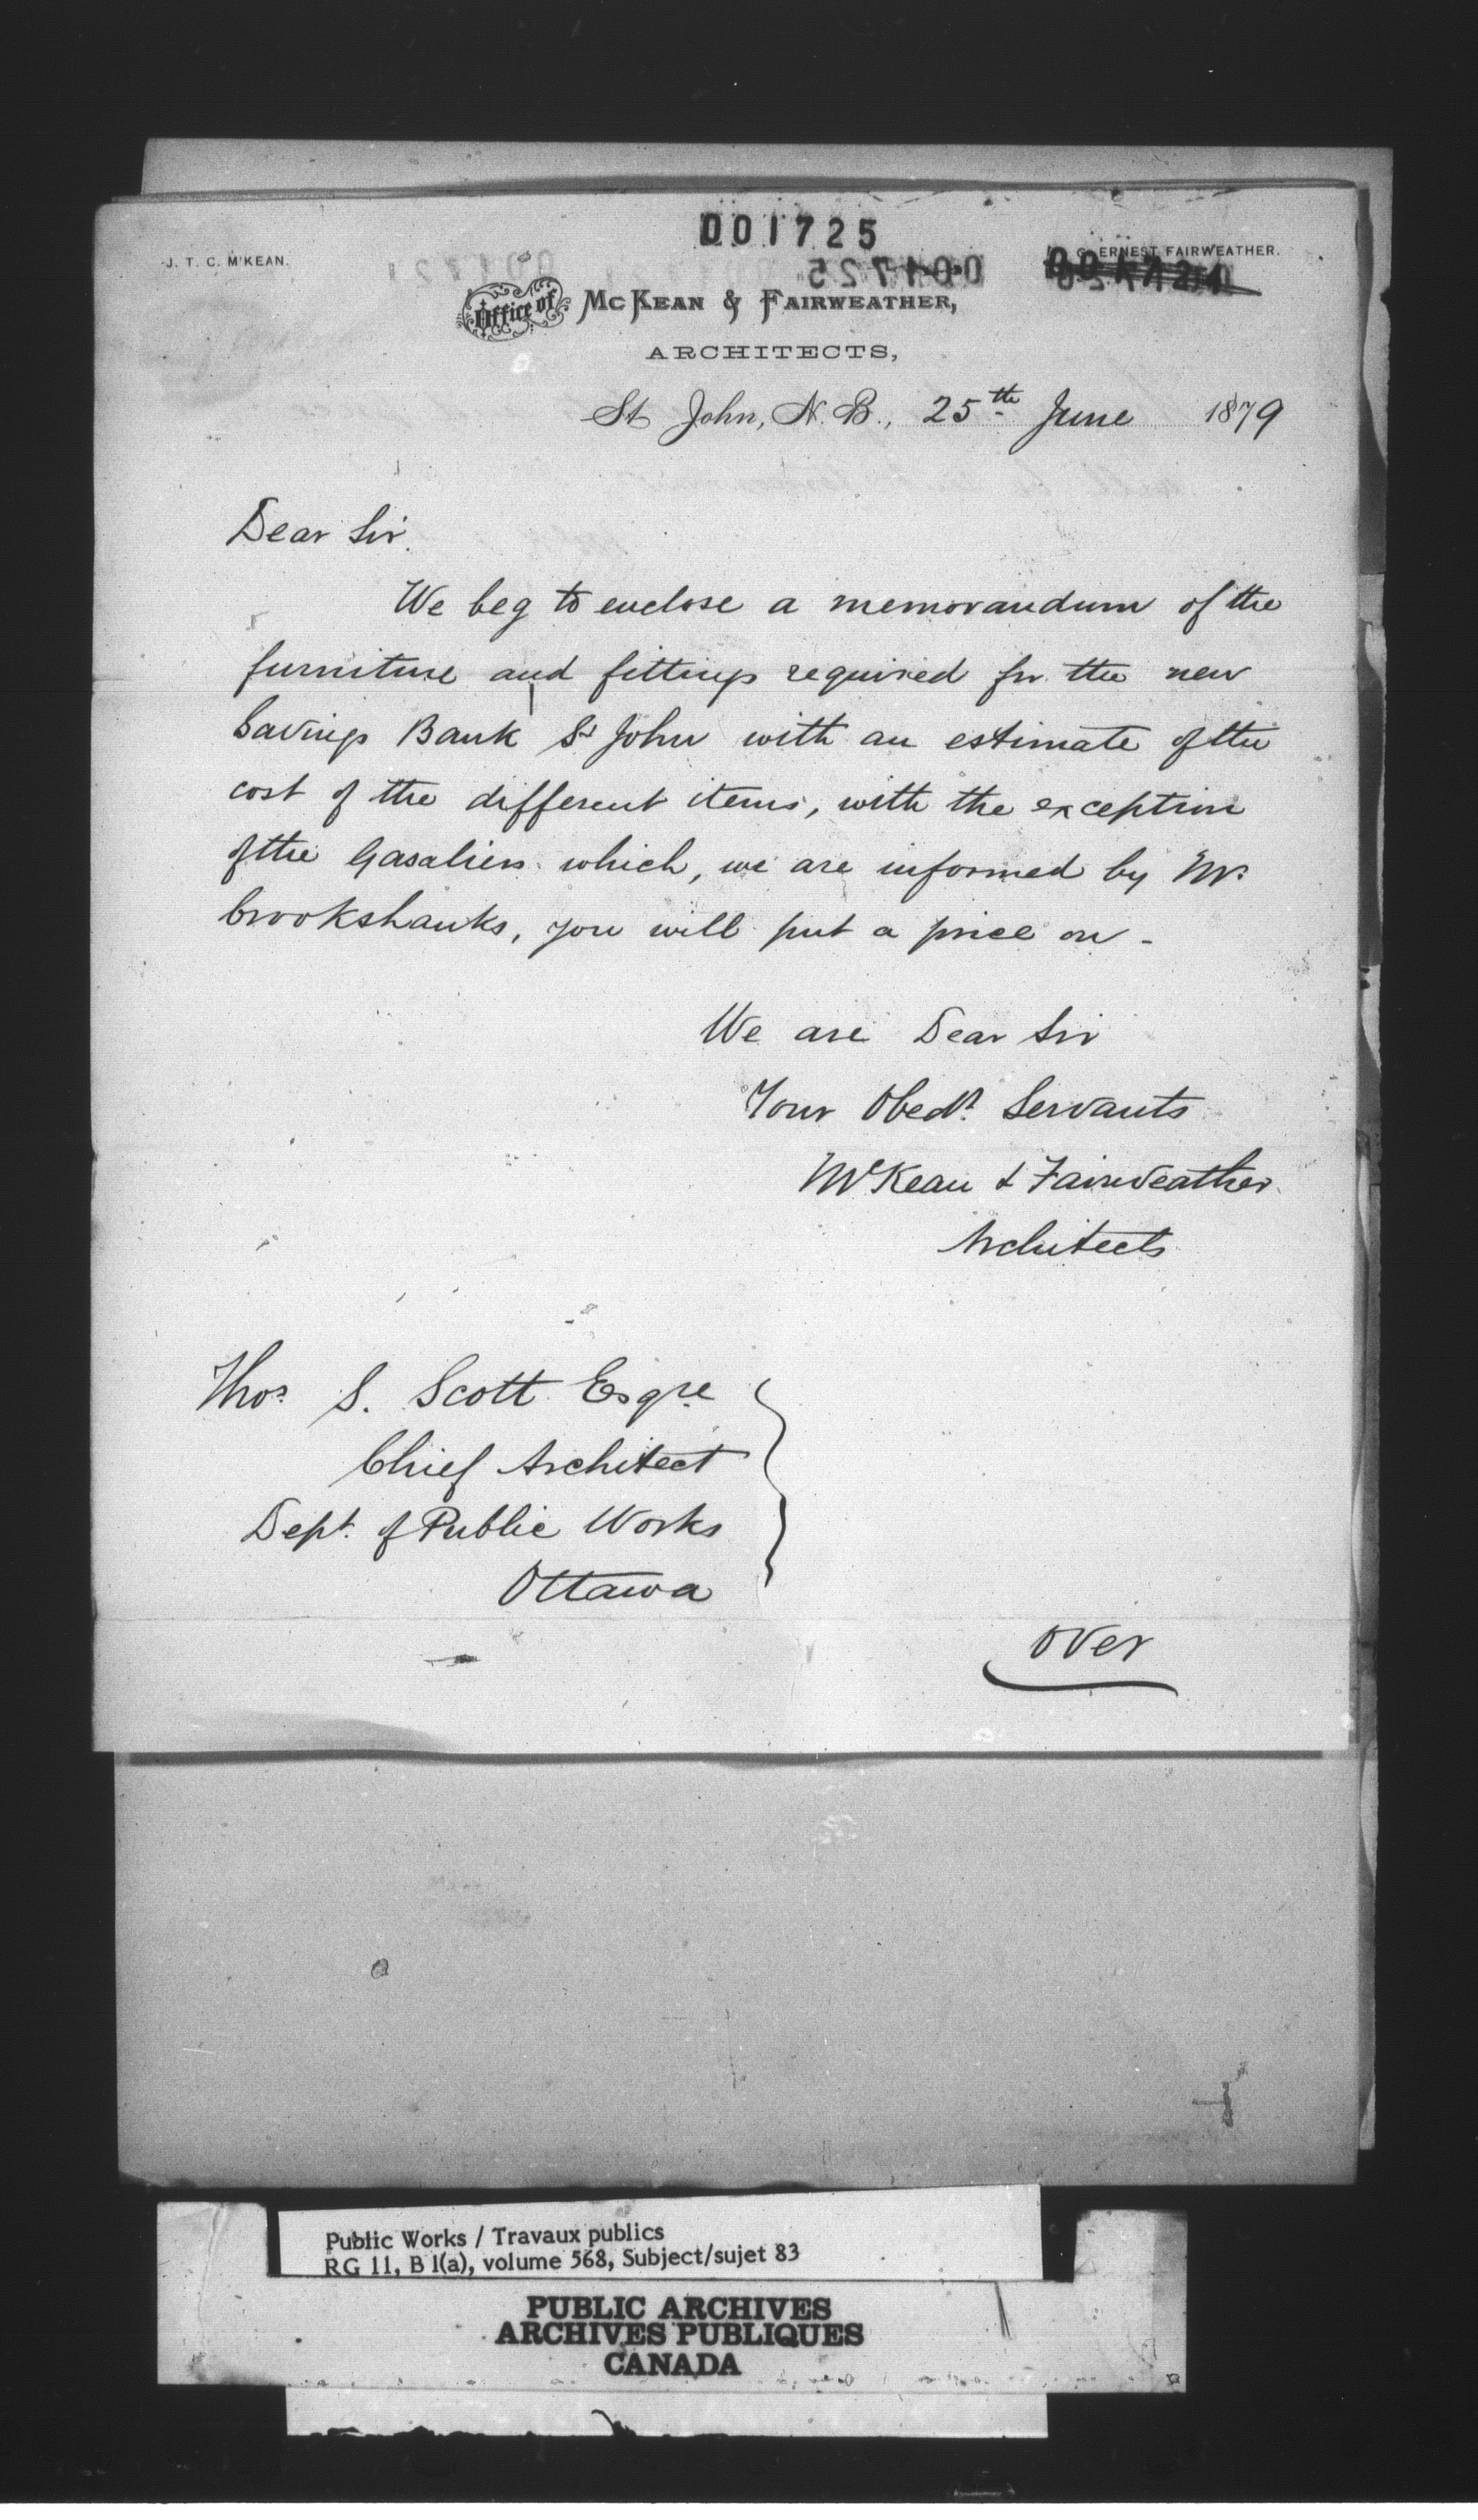 001725
J. T. C. McKEAN.
G. ERNEST FAIRWEATHER.
Office of McKean & Fairweather,
ARCHITECTS,
St John, N. B., 25th June 1879
Dear Sir.
We beg to enclose a memorandum of the
furniture and fittings required for the new
Savings Bank St John with an estimate of the
cost of the different items, with the exception
of the Gasaliers which, we are informed by Mr.
Crookshanks, you will put a price on -
We are Dear Sir
Your Obedt. Servants
McKean & Fairweather
Architects
Thos. S. Scott Esqre
Chief Architect
Dept. of Public Works
Ottawa
over
Public Works / Travaux publics
RG 11, B 1(a), volume 568, Subject/sujet 83
PUBLIC ARCHIVES
ARCHIVES PUBLIQUES
CANADA